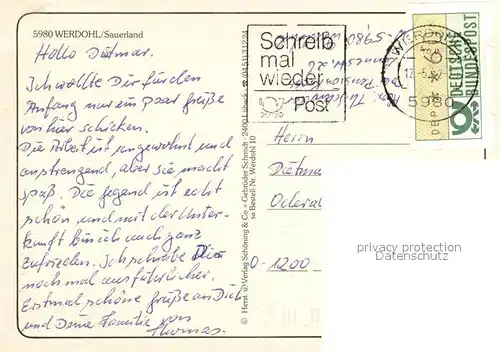 5980 WERDOHL/Sauerland
Hallo Dietmar.
Ich wollte Dir für den
Anfang nur ein paar Grüße
von hier schicken.
Die Arbeit ist ungewohnt und
anstrengend, aber sie macht
Spaß. Die Gegend ist echt
schön und mit der Unter-
kunft bin ich auch ganz
zufrieden. Ich schreibe Dir
noch mal ausführlicher.
Erstmal schöne Grüße an Dich
und Deine Familie von
Thomas.
© Herst. u. Verlag Schöning & Co + Gebrüder Schmidt · 24001 Lübeck ☎ 04 51/3 12 24
sa Bestell-Nr. Werdohl 10
Schreib
mal
wieder
Post
5980
WERDOHL
5980
DEUTSCHE
BUNDESPOST
DBP
Herrn
Dietma
Oderal
O-1200
privacy protection
Datenschutz